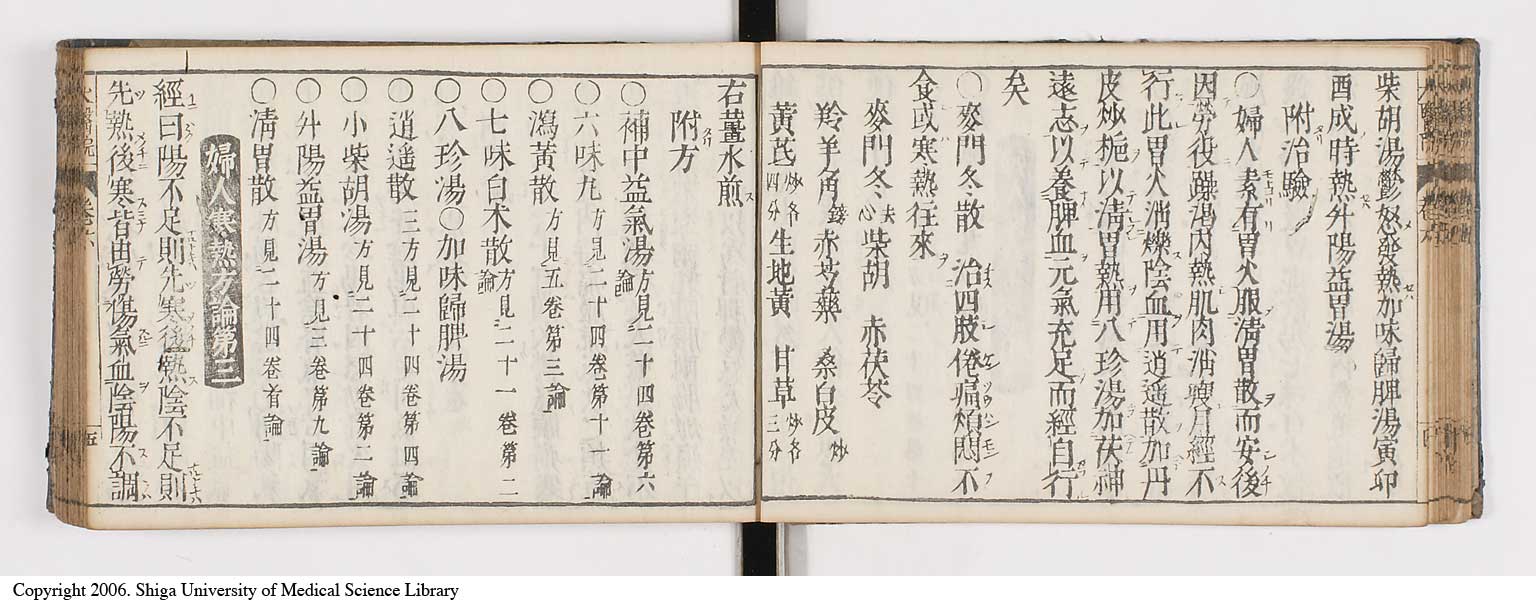 柴胡湯鬱怒發熱加味歸脾湯寅卯
酉成時熱升陽益胃湯
附治驗
○婦人素有胃火服淸胃散而安後
因勞役躁渴内熱肌肉消瘦月經不
行此胃火消爍陰血用逍遥散加丹
皮炒梔以淸胃熱用八珍湯加茯神
遠志以養脾血元氣充足而經自行
矣
○麥門冬散 治四肢倦瘟煩悶不
食或寒熱往來
麥門冬去心 柴胡 赤茯苓
羚羊角鎊 赤芍藥 桑白皮炒
黃芪炒各四分 生地黃 甘草炒各三分
右薑水煎
附方
○補中益氣湯方見二十四卷第六論
○六味丸方見二十四卷第十一論
○瀉黃散方見五卷第三論
○七味白朮散方見二十一卷第二論
○八珍湯○加味歸脾湯
○逍遥散三方見二十四卷第四論
○小柴胡湯方見二十四卷第二論
○升陽益胃湯方見三卷第九論
○淸胃散方見二十四卷首論
婦人寒熱方論第三
經曰陽不足則先寒後熱陰不足則
先熱後寒皆由勞傷氣血陰陽不調
卷之六
五
Copyright 2006. Shiga University of Medical Science Library